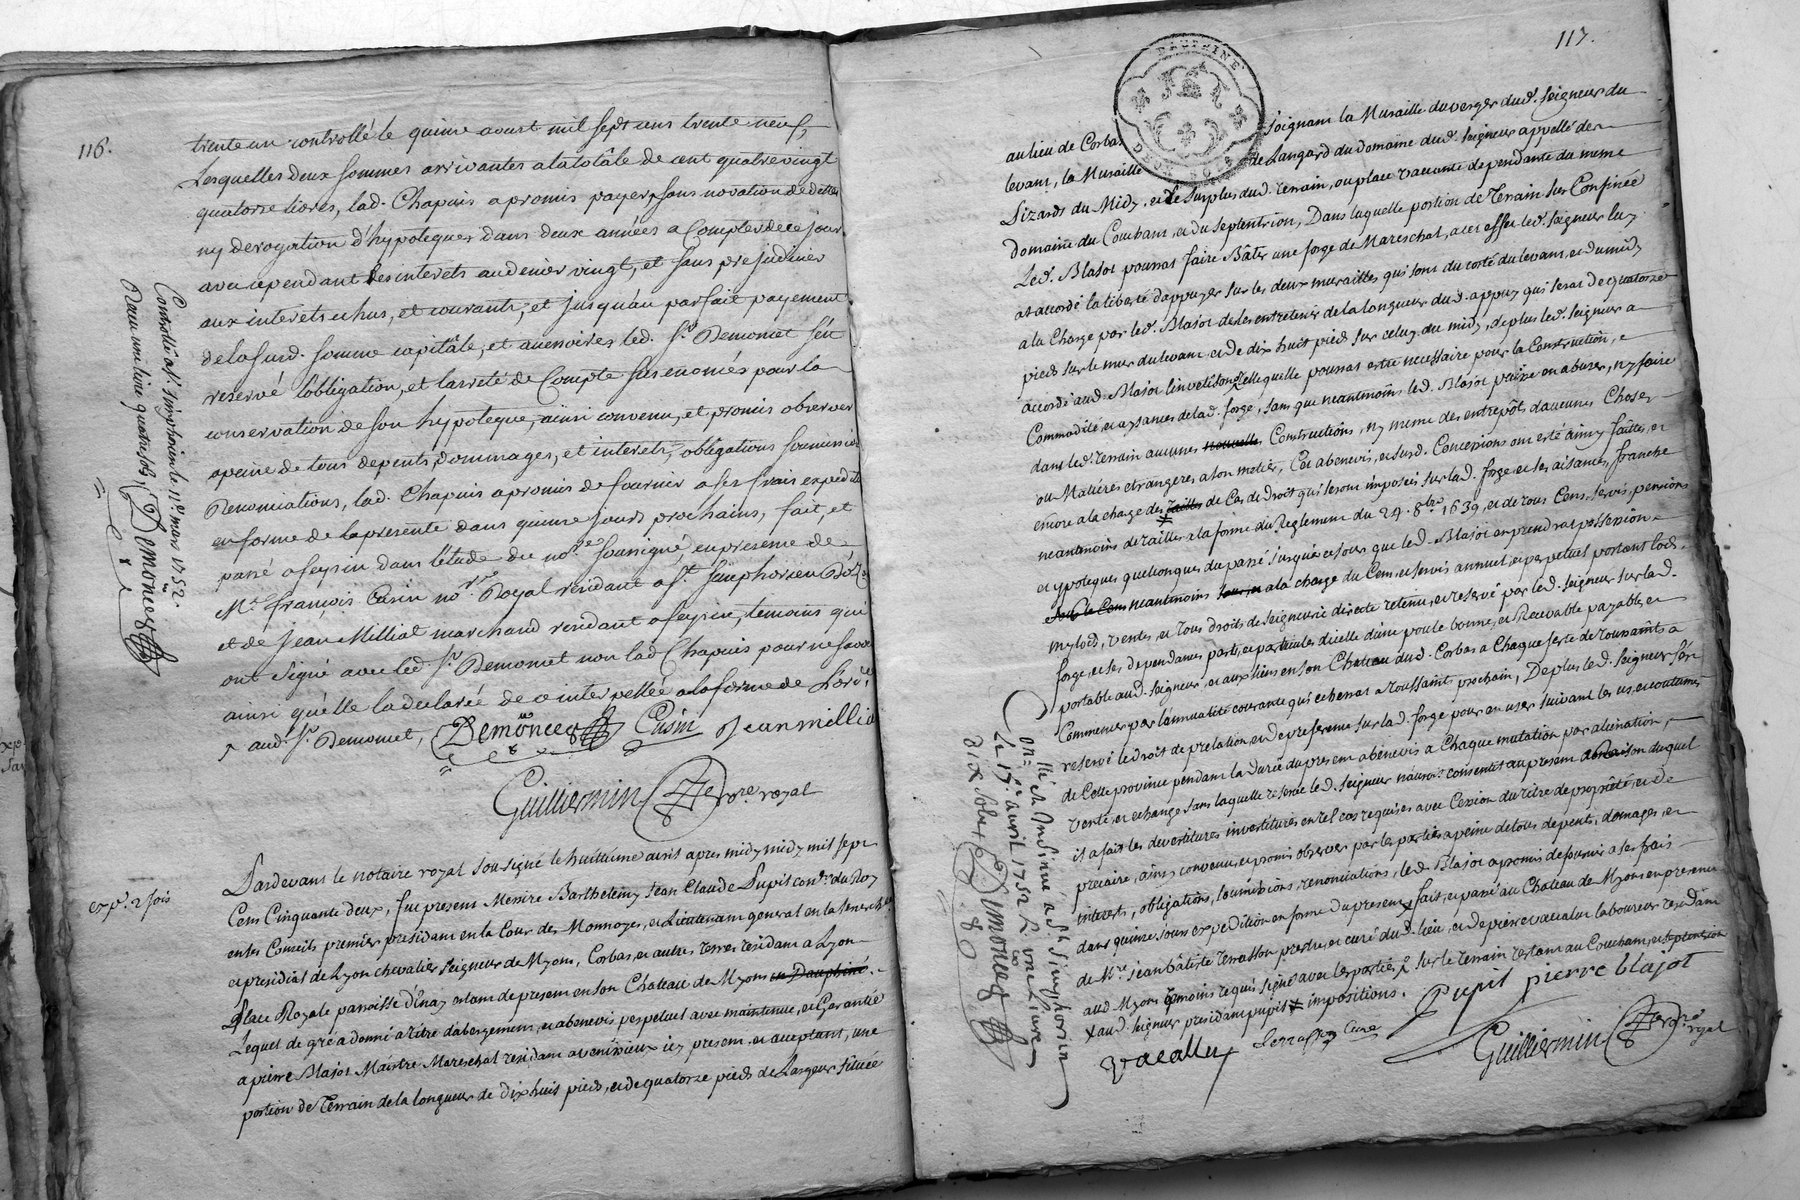 116.
trente un controllé le quinze aoust mil sept cens trente neuf,
Lesquelles deux sommes arrivantes a la totâle de cent quatre vingt
quatorze livres, lad. Chapuis a promis payer sans novation de dettes
ny derogation d'hypoteques dans deux années a Compter de ce jour,
avec cependant les interets au denier vingt, et sans prejudicier
aux interets echus, et courants, et jusqu'au parfait payement
de la susd. somme capitâle, et au envoires led. Sr. Demoncet s'est
reservé l'obligation, et l'arreté de Compte sus enoncés pour la
conservation de son hypoteque, ainsi convenu, et promis observer
a peine de tous depents, dommages, et interets, obligations, soumissions
Renonciations, lad. Chapuis a promis de fournir a ses frais expedit.
en forme de la presente dans quinze jours prochains, fait, et
passé a feyzin dans l'étude du nore. soussigné, en presence de
Me. françois Cusin nore. Royal residant a st. simphorien D'oz.
et de Jean Milliat marchand residant a feyzin, temoins qui
ont signé avec led. Sr. Demoncet non lad. Chapuis pour ne savoir
ainsi qu'elle la declarée de ce interpellée a la forme de l'ord.e
aud. Sr. Demoncet,
Demoncet Cusin Jean milliat
Guilliermin nore. royal
Controllé a st. simphorien le 11e. mars 1752.
Reçu une livre quatre sols
Demoncet
exp. 2 fois
Pardevant le notaire royal soussigné le huitième avril apres midy midy mil sept
Cens Cinquante deux, fut present Messire Barthelemy Jean Claude Pupil conser. du Roy
en ses Conseils premier president en la Cour des Monnoyes, et Lieutenant general en la senechée.
et presidial de Lyon chevalier Seigneur de Myons, Corbas, et autres terres residant a Lyon
place Royale paroisse d'Enay, estant de present en son Chateau de Myons en Dauphiné.
Lequel de gré a donné a titre d'abergement, et abenevis perpetuel avec maintenue, et Garantie
a pierre Blajot Maistre Mareschal residant a venissieux icy present, et acceptant, une
portion de Terrain de la longueur de dix huit pieds, et de quatorze pieds de Largeur située
117.
DAUPHINE
DEUX SOLS
au lieu de Corbas joignant la Muraille du verger dud. Seigneur du
levant, la Muraille de Langard du domaine dud. Seigneur appellé des
Lizards du Midy, et le surplus dud. terrain, ou place vaccante dependante du meme
domaine du Couchant, et du Septentrion, Dans laquelle portion de Terrain sus Confinée
Led. Blajot pourrat faire Bâtir une forge de Mareschal, a cet effet led. Seigneur luy
at accordé la liberté d'appuyer sur les deux murailles, qui sont du costé du levant, et du midy
a la Charge par led. Blajot de les entretenir de la longueur dud. appuy qui serat de quatorze
pieds sur le mur du levant et de dix huit pieds sur celuy du midy, de plus led. Seigneur a
accordé aud. Blajot l'investison telle quelle pourrat estre necessaire pour la Construction, e
Commodité, et aysances de lad. forge, sans que neantmoins led. Blajot puisse en abuser, ny faire
dans led. terrain aucunes nouvelles Constructions, ny meme des entrepôts d'aucunes Choses
ou Matières etrangeres a son metier, Cet abenevis, et susd. Concessions ont esté ainsy faittes, et
encore a la charge des tailles de Cas de Droit qui seront imposées sur lad. forge et ses aisances, franche
neantmoins de tailles a la forme du Reglement du 24. 8bre 1639, et de tous Cens, servis, pensions
et ypoteques quelconques du passé jusques a ce jour que led. Blajot en prendrat possession
sous le Cens neantmoins sous, et a la charge du Cens, et servis annuel, et perpetuel portant lods,
mylods, ventes, et tous droits de seigneurie directe retenu, et reservé par led. Seigneur sur lad.
forge, et ses dependances, parts, et particules d'icelle d'une poule bonne, et Recevable payable, et
portable aud. Seigneur, et aux siens en son Chateau dud. Corbas a Chaque feste de toussaints a
Commencer par l'annualité courante qui echerrat a toussaint prochain, De plus led. Seigneur s'est
reservé le droit de prelation, et de preference sur lad. forge pour en user suivant les us, et coutumes
de Cette province pendant la durée du present abenevis a Chaque mutation par alienation,
vente, et echange sans laquelle reserve led. Seigneur n'auroit consenti au present a Raison duquel
il a fait les devestitures investitures en tel cas requises avec Cession du titre de propriété, et de
precaire, ainsy convenu, et promis observer par les parties a peine de tous depents, domages, et
interests, obligations, soumissions, renonciations, led. Blajot a promis de fournir a ses frais
dans quinze jours expedition en forme du present, fait, et passé au Chateau de Myons en presence
de Mre. jean bâtiste terrasson prestre, et curé dud. lieu, et de pierre vacalu laboureur residant
aud. Myons temoins requis signé avec les parties, sur le terrain restant au Couchant, et Septentrion
aud. Seigneur president pupil impositions.
Pupil pierre blajot
vacallu Terrasson curé
Guilliermin nore. royal
Controllé et Insinué a St. Simphorien
Le 17e. avril 1752 Reçu une Livre
Dix sols
Demoncet